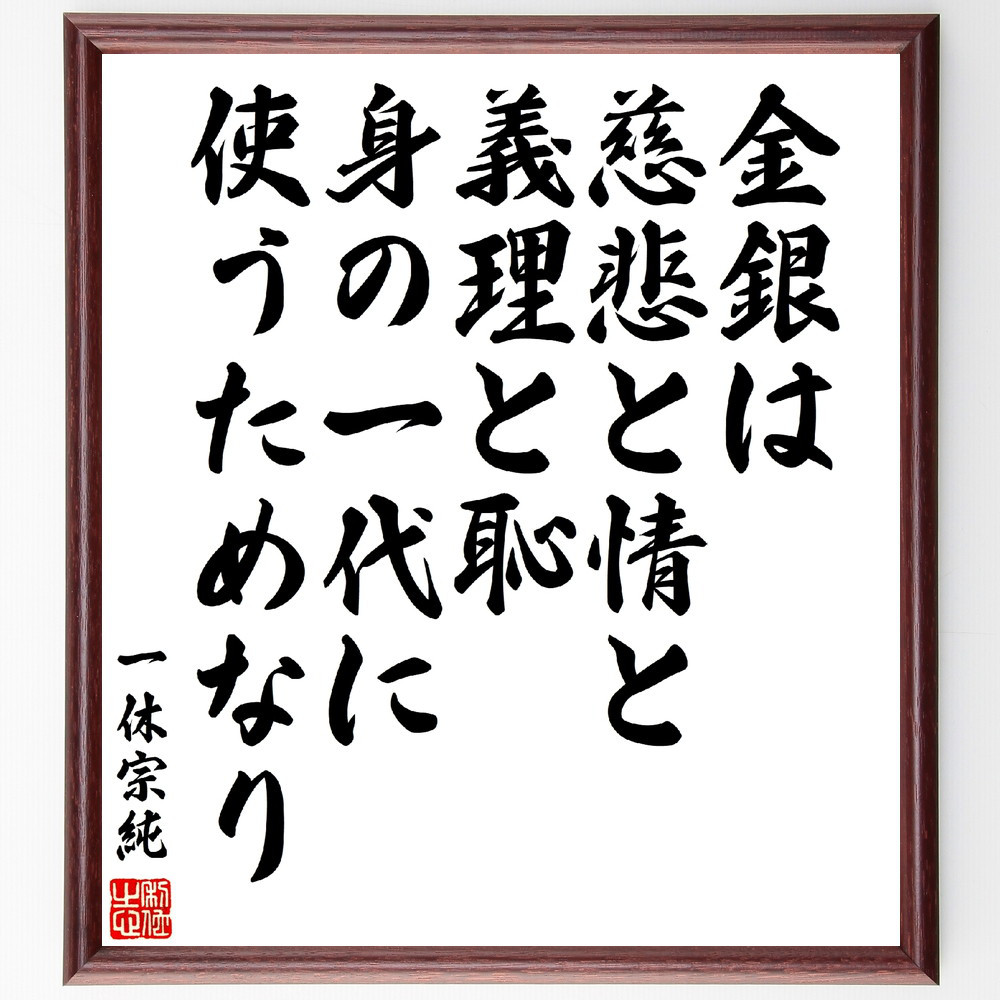 金銀は
慈悲と情と
義理と恥
身の一代に
使うためなり
一休宗純